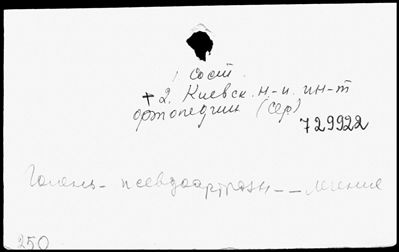 1 сост.
+ 2. Киевск. н-и. ин-т
ортопедии (сер)
729922
Голень - псевдоартрозы -- лечение
250